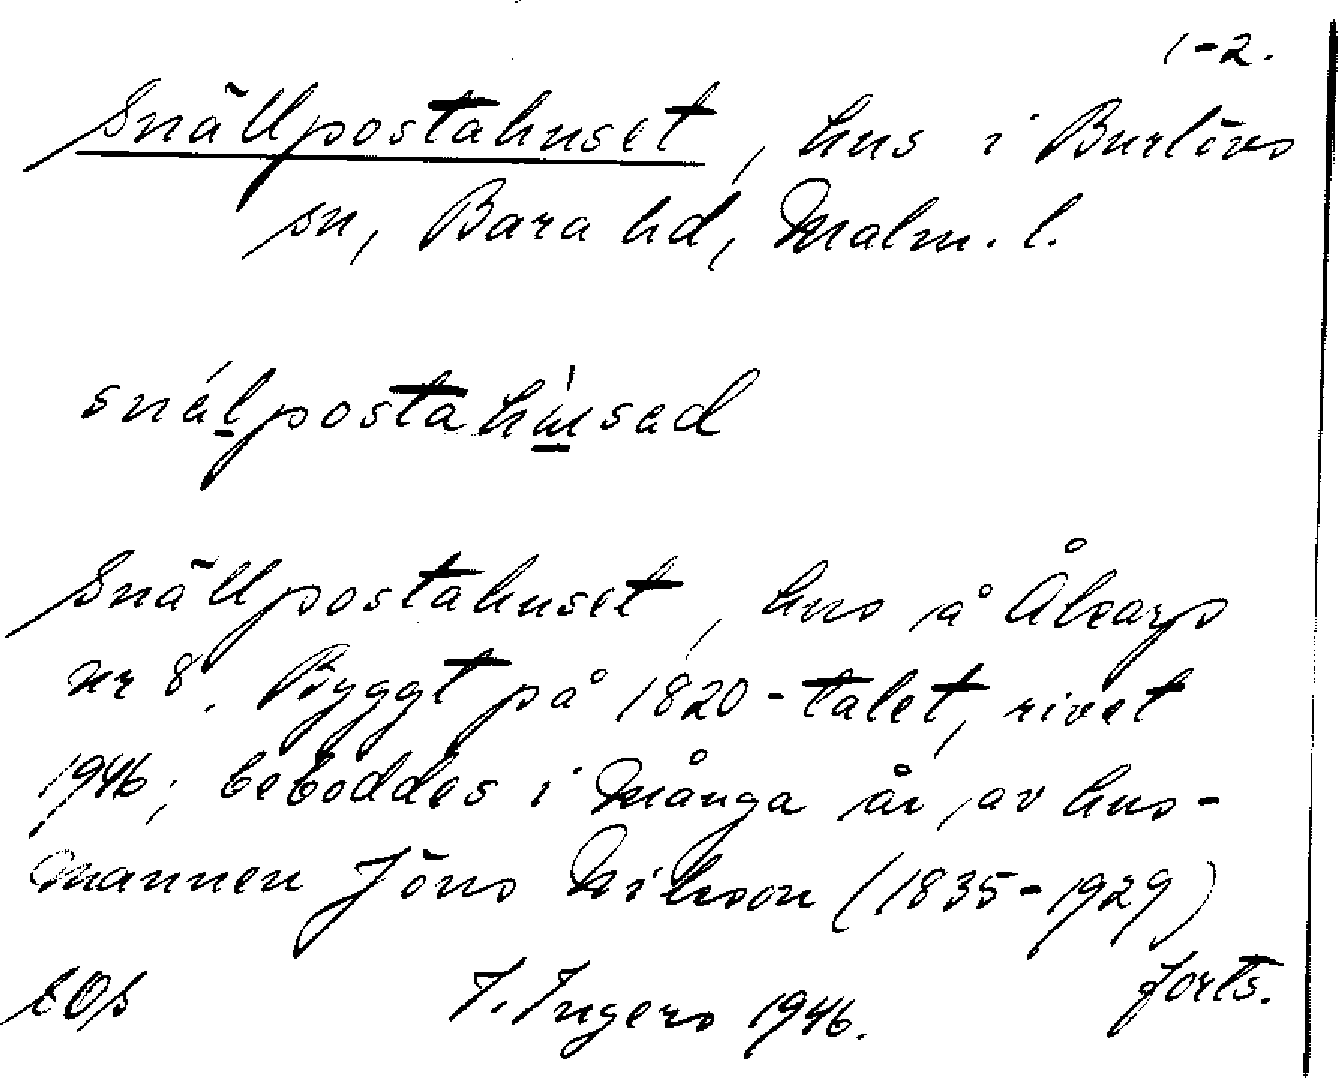 1-2.
Snällpostahuset, hus i Burlövs
sn, Bara hd, Malm. l.
snálpostahúsad
Snällpostahuset, hus å Åkarps
nr 8. Byggt på 1820-talet, rivet
1946; beboddes i många år av hus-
mannen Jöns Nilsson (1835-1929)
forts.
I. Ingers 1946.